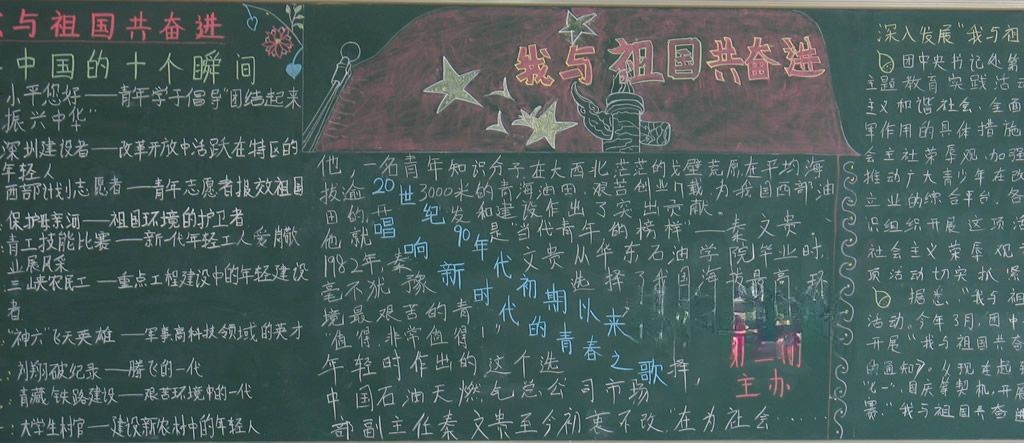 与祖国共奋进
中国的十个瞬间
小平您好——青年学子倡导"团结起来
振兴中华"
深圳建设者——改革开放中活跃在特区的
年轻人
西部计划志愿者——青年志愿者报效祖国
保护母亲河——祖国环境的护卫者
青工技能比赛——新一代年轻工人爱岗敬
业展风采
三峡农民工——重点工程建设中的年轻建设
者
"神六"飞天英雄——军事高科技领域的英才
刘翔破纪录——腾飞的一代
青藏铁路建设——艰苦环境中的一代
大学生村官——建设新农村中的年轻人
我与祖国共奋进
他,一名青年知识分子在大西北茫茫的戈壁荒原在平均海
拔逾3000米的青海油田,艰苦创业,为我国西部油
田的开发和建设作出了突出贡献。
他就是"当代青年的榜样"——秦文贵。
1982年,秦文贵从华东石油学院毕业时,
毫不犹豫选择了我国海拔最高、环
境最艰苦的青
"值得,非常值得!"
年轻时作出的这个选择,
中国石油天燃气总公司市场
部副主任秦文贵至今初衷不改"在为社会……
20世纪90年代初期以来
唱响新时代的青春之歌
主办
深入发展"我与祖
团中央书记处第
主题教育实践活动
主义和谐社会、全面
军作用的具体措施
会主社荣辱观、加强
推动广大青少年在改
立业的综合平台。各
识组织开展这项活
社会主义荣辱观
项活动切实抓紧
据悉,"我与祖
活动。今年3月,团中
开展"我与祖国共奋
的通知》。从现在起到
"七一"、国庆等契机,开展
赛""我与祖国共奋进